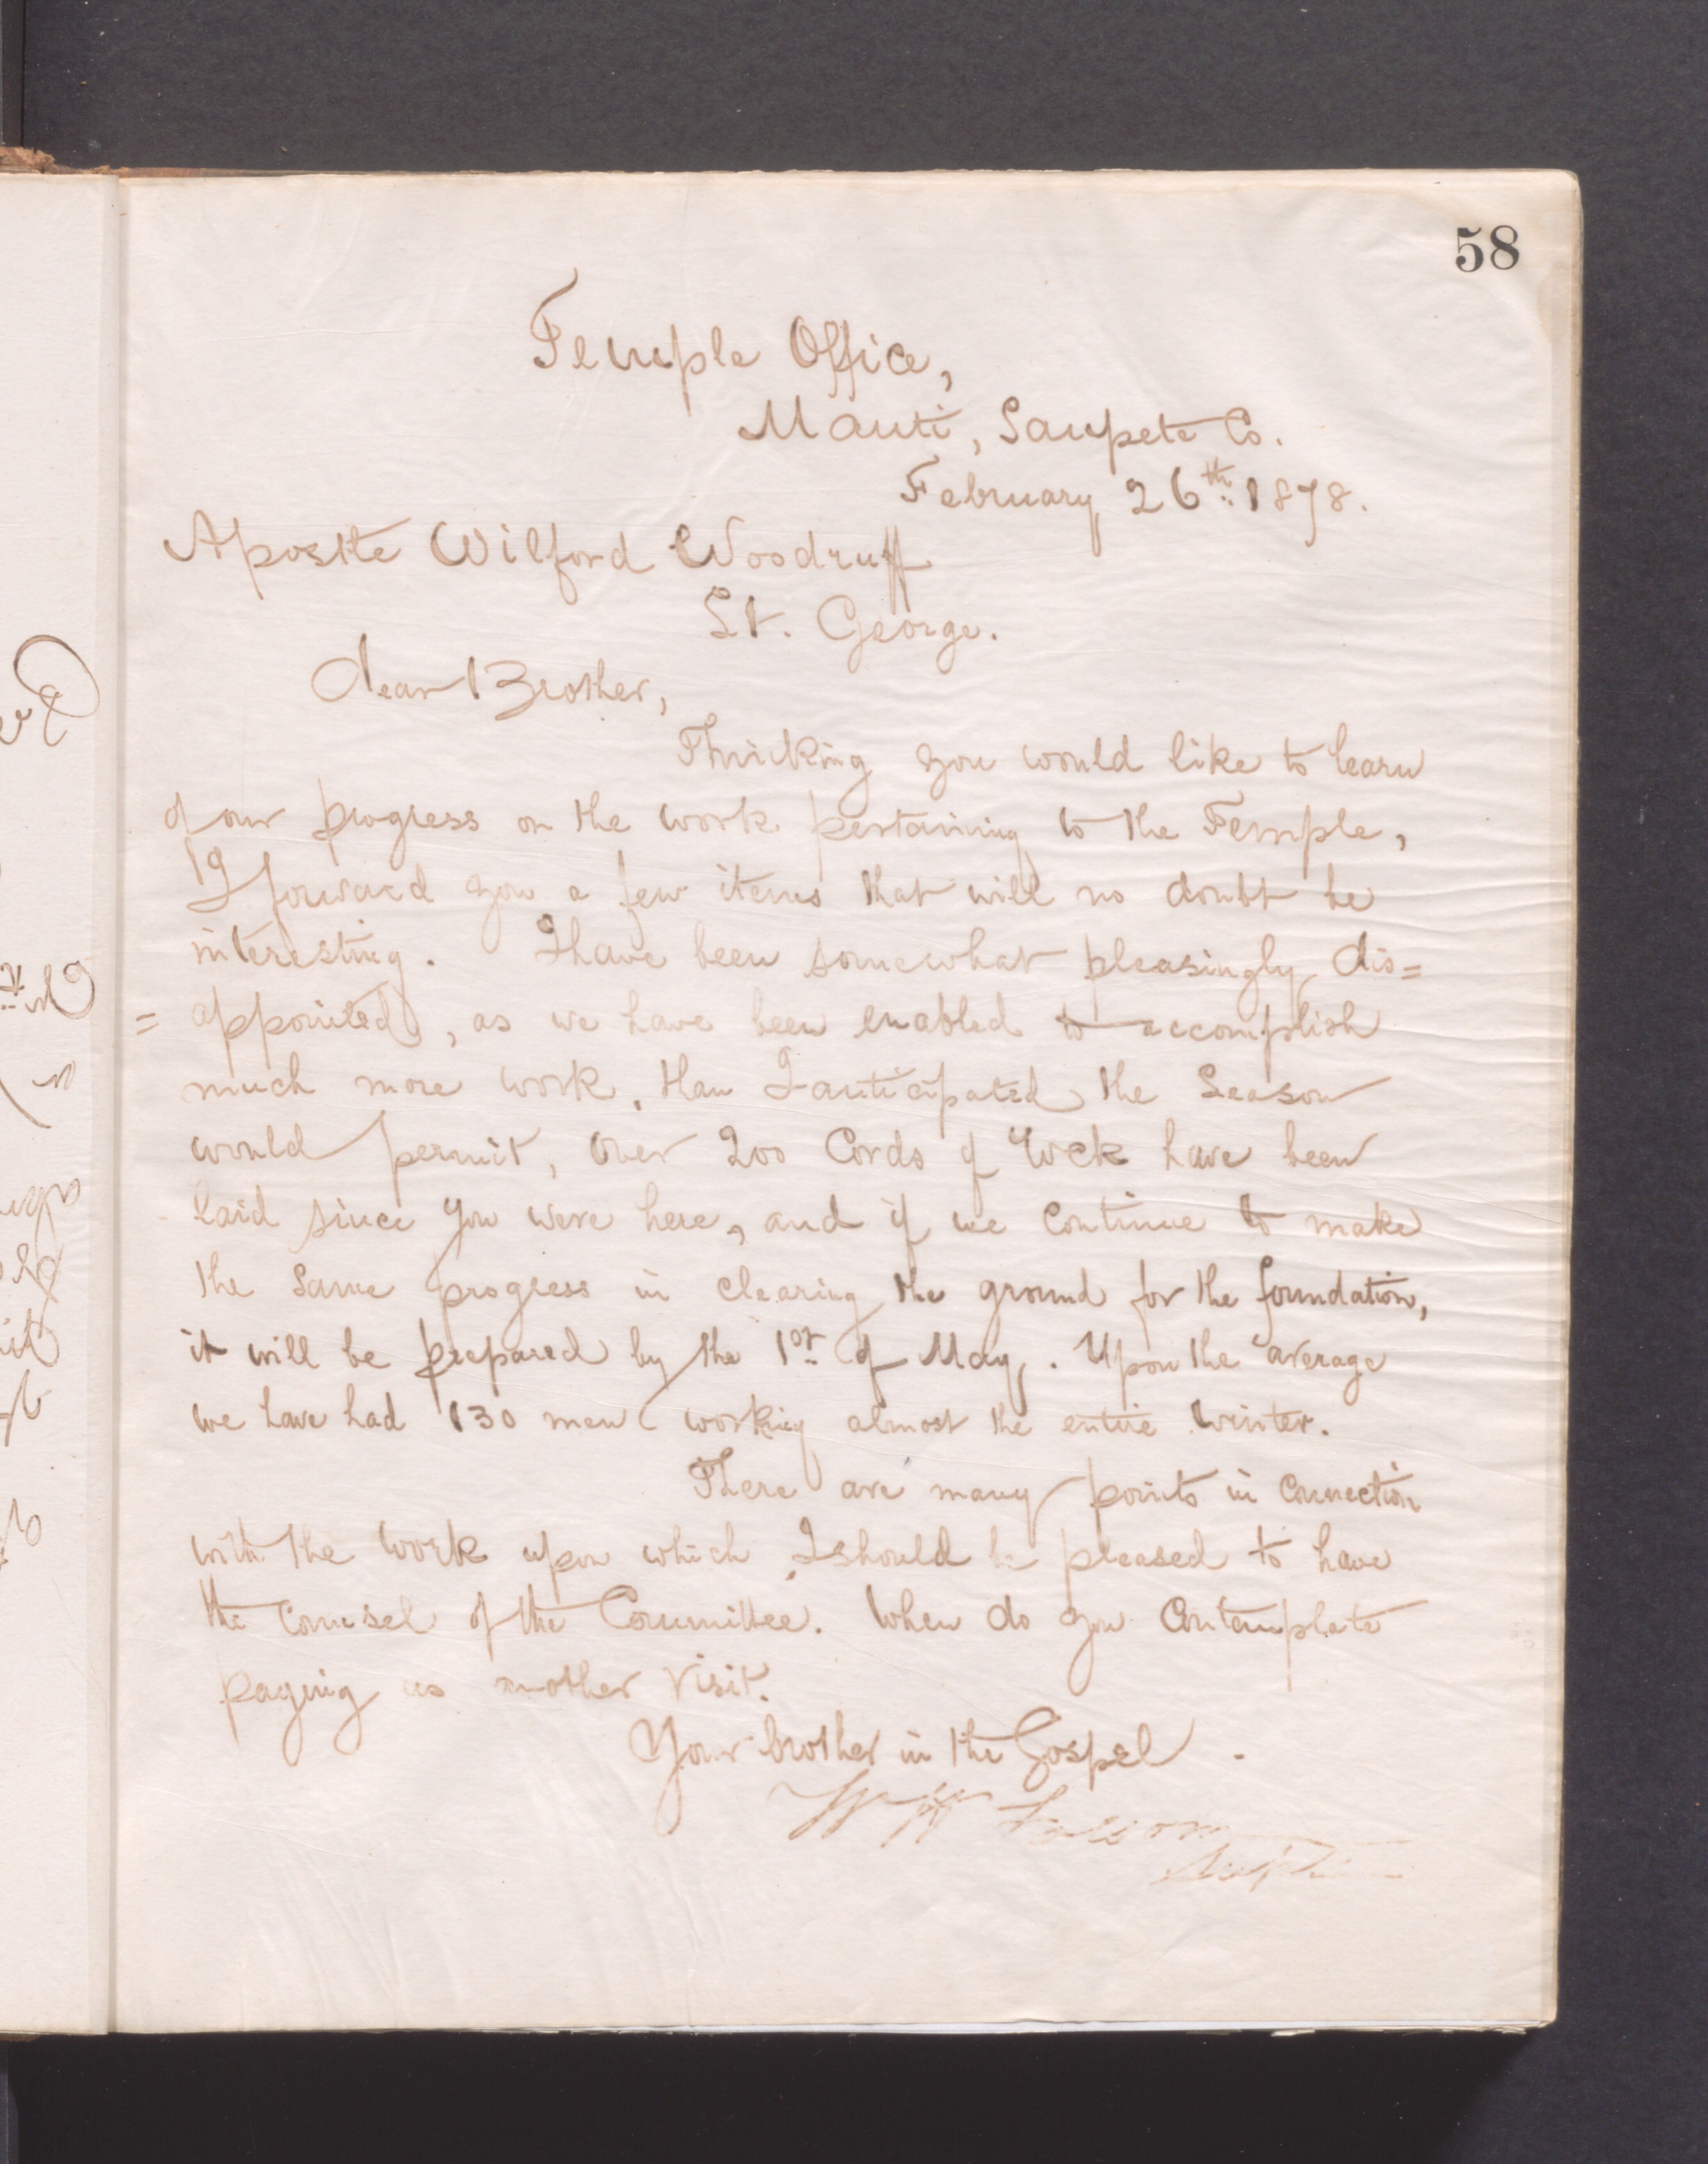 58
Temple Office,
Manti, Sanpete Co.
February 26th 1878.
Apostle Wilford Woodruff
St. George.
Dear Brother,
Thinking you would like to learn
of our progress on the work pertaining to the Temple,
I forward you a few items that will no doubt be
interesting. I have been somewhat pleasingly dis=
=appointed, as we have been enabled to accomplish
much more work, than I anticipated the Season
would permit, Over 200 Cords of rock have been
laid since you were here, and if we continue to make
the same progress in clearing the ground for the foundation,
it will be prepared by the 1st of May. Upon the average
we have had 130 men working almost the entire winter.
There are many points in connection
with the work upon which I should be pleased to have
the counsel of the Committee. When do you contemplate
paying us another visit.
Your brother in the Gospel
Folsom
Supt